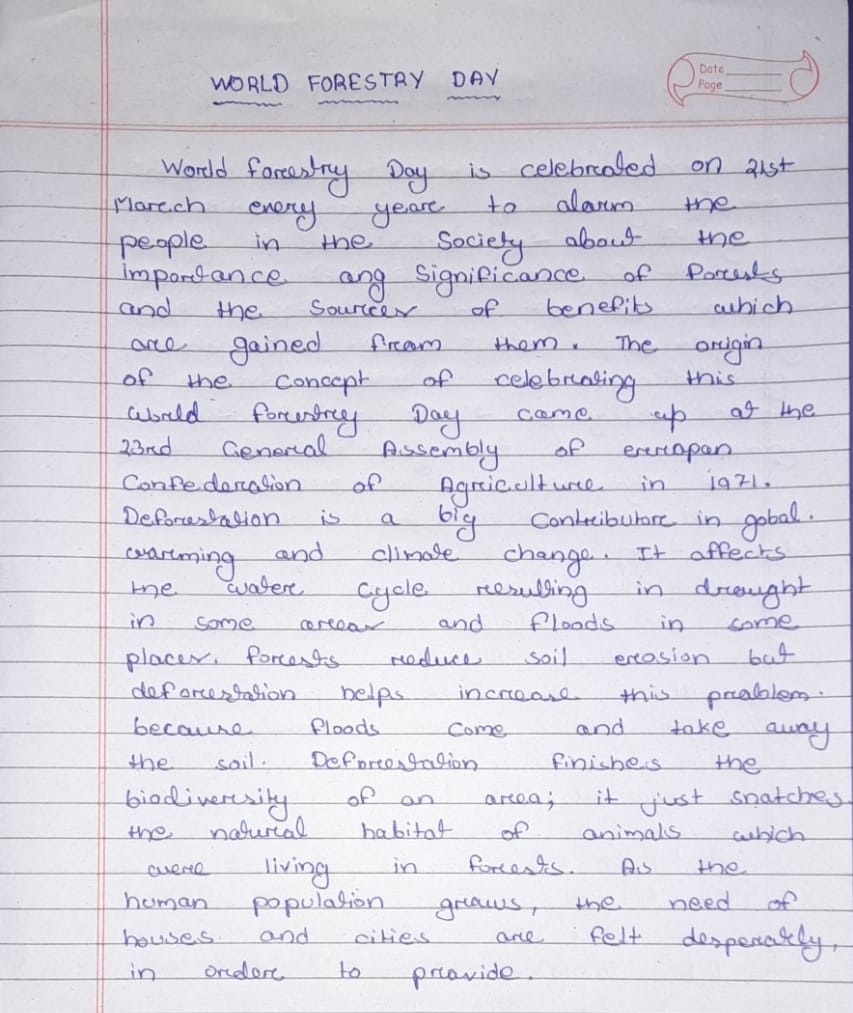 WORLD FORESTRY DAY
Date
Page
World forestry Day is celebrated on 21st
March every year to alarm the
people in the Society about the
importance ang Significance of Forests
and the Sources of benefits which
are gained from them. The origin
of the Concept of celebrating this
World forestry Day came up at the
23rd General Assembly of euroopan
Confederation of Agriculture in 1971.
Deforestation is a big Contributor in gobal.
warming and climate change. It affects
the water cycle resulting in drought
in some areas and floods in some
places. forests reduce soil erosion but
deforestation helps increase this problem.
because floods come and take away
the soil. Deforestation finishes the
biodiversity of an area; it just snatches
the natural habitat of animals which
were living in forests. As the
human population grows, the need of
houses and cities are felt desperately,
in order to provide.